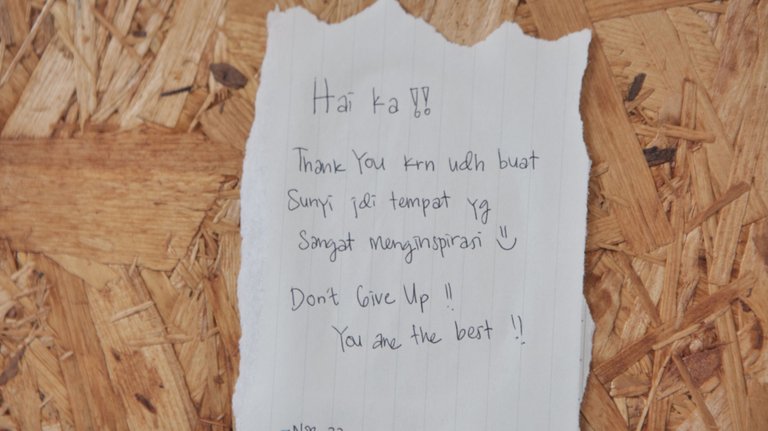 Hai ka !!
Thank You krn udh buat
Sunyi jdi tempat yg
Sangat menginspirasi
Don't Give Up !!
You are the best !!